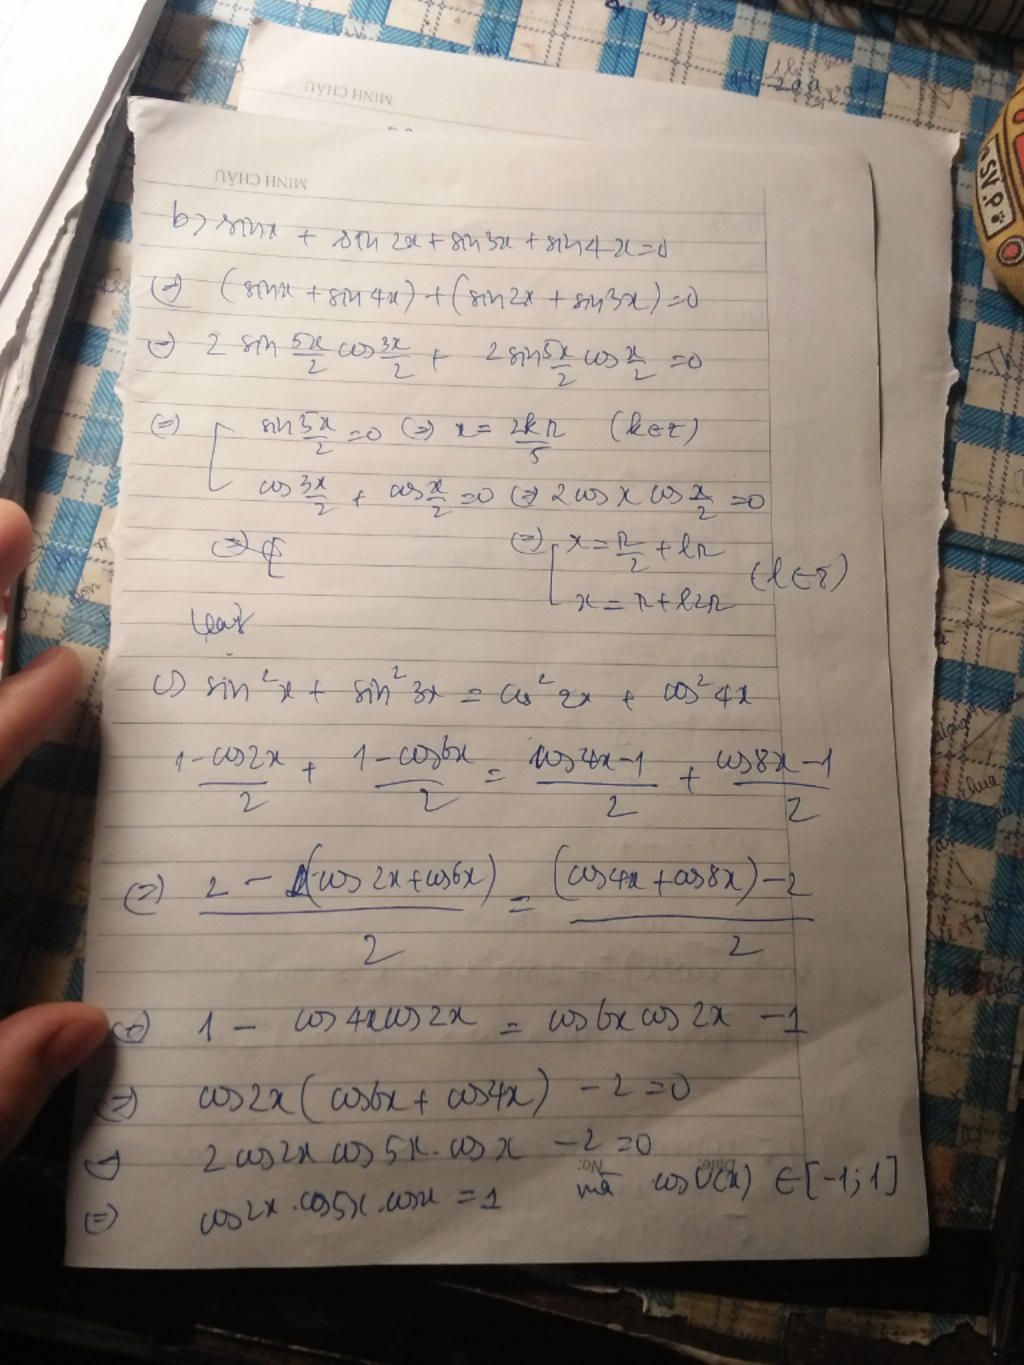 MINH CHÂU
MINH CHÂU
b) sinx + sin2x + sin3x + sin4x = 0
(=) (sinx + sin4x) + (sin2x + sin3x) = 0
(=) 2 sin 5x/2 cos 3x/2 + 2 sin 5x/2 cos x/2 = 0
(=) [ sin 5x/2 = 0 (=) x = 2kπ/5 (k∈Z)
cos 3x/2 + cos x/2 = 0 (=) 2 cos x cos x/2 = 0
(=) (=) [ x = π/2 + lπ
x = π + l2π (l∈Z)
c) sin²x + sin²3x = cos²2x + cos²4x
1-cos2x/2 + 1-cos6x/2 = cos4x-1/2 + cos8x-1/2
(=) 2 - (cos2x+cos6x)/2 = (cos4x+cos8x)-2/2
(=) 1 - cos4xcos2x = cos6xcos2x - 1
(=) cos2x(cos6x + cos4x) - 2 = 0
(=) 2cos2x cos5x.cosx - 2 = 0
(=) cos2x.cos5x.cosx = 1 mà cosU(x) ∈ [-1;1]
Date:
No:
SV.P